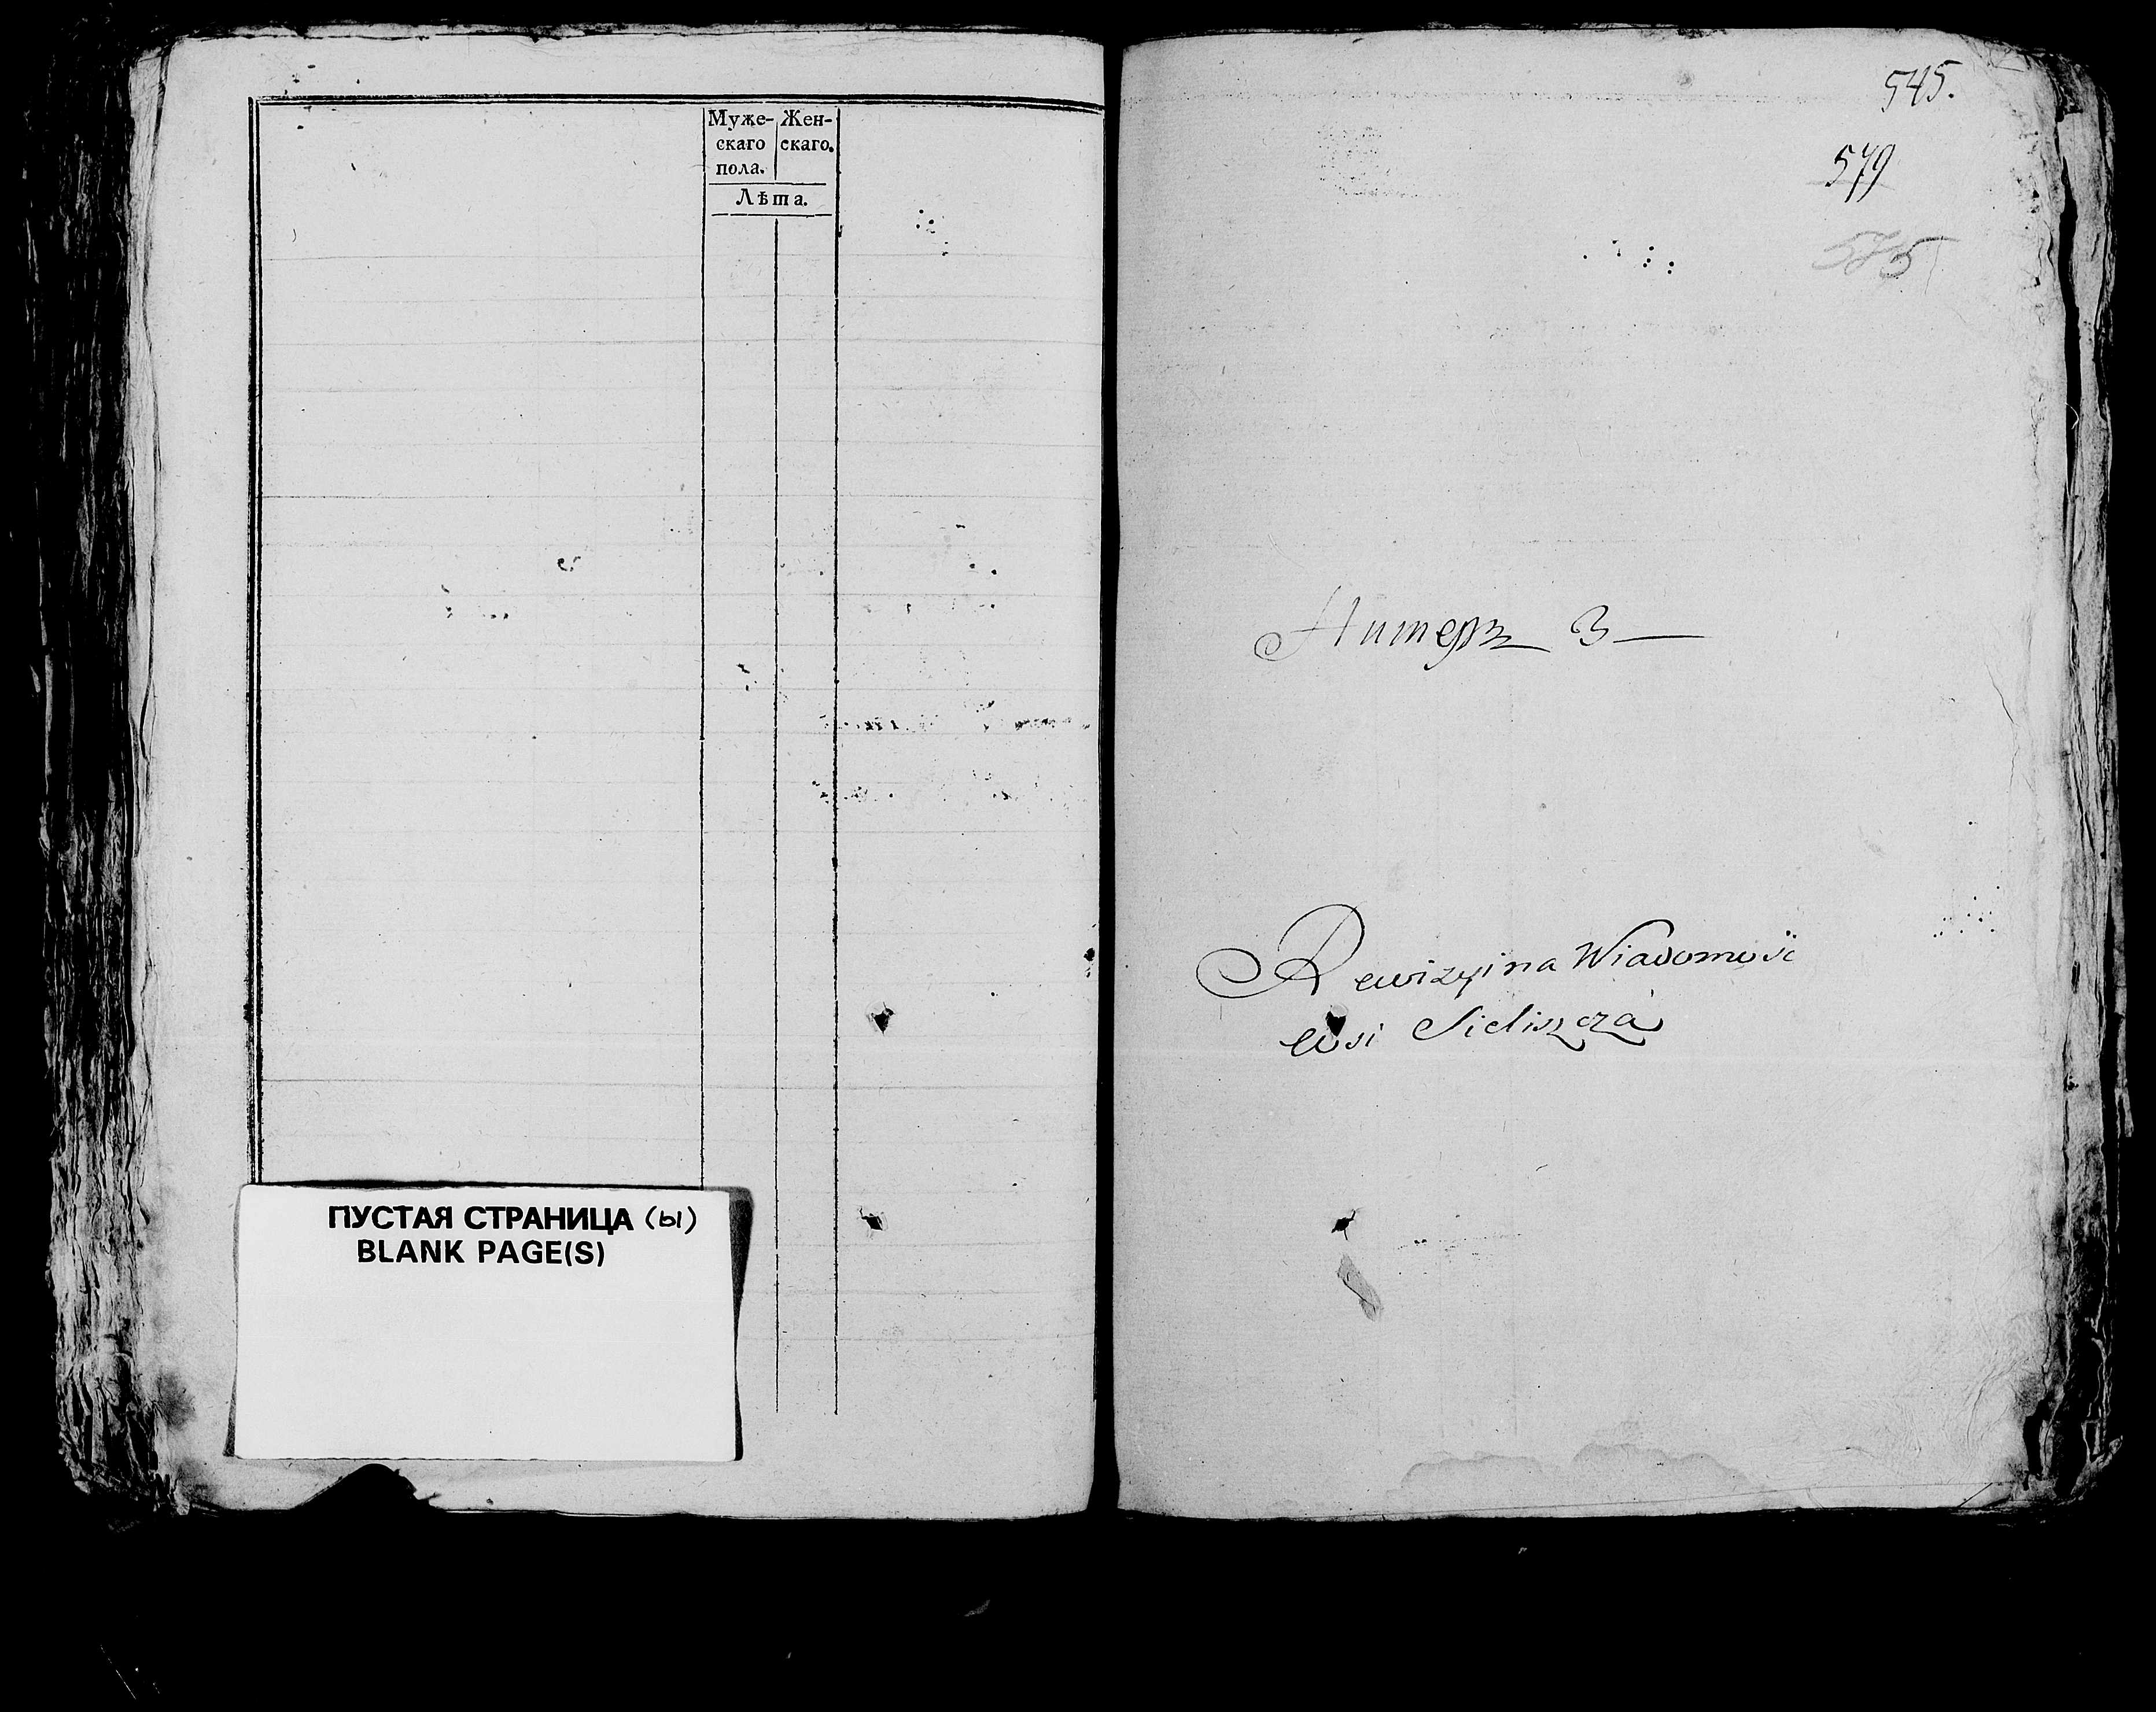 Муже- Жен-
скаго скаго.
пола.
Лѣта.
ПУСТАЯ СТРАНИЦА (ы)
BLANK PAGE(S)
545.
579
575
Литеръ З
Rewizyina Wiadomość
wsi Sieliszcza